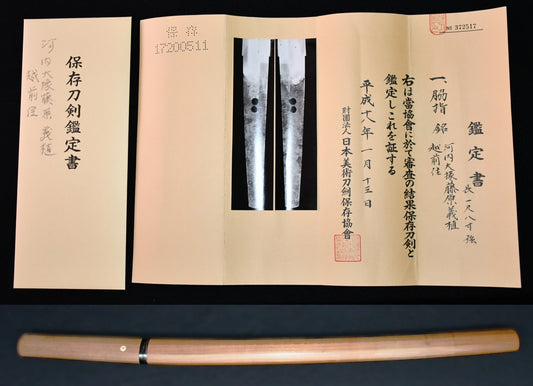 保存刀剣鑑定書
河内大掾藤原義植
越前住
保存
17200511
No 372517
鑑定書
一、脇指 銘 河内大掾藤原義植
越前住
長一尺八寸強
右は當協會に於て審査の結果保存刀剣と
鑑定しこれを証する
平成十八年一月十三日
財團法人日本美術刀剣保存協會